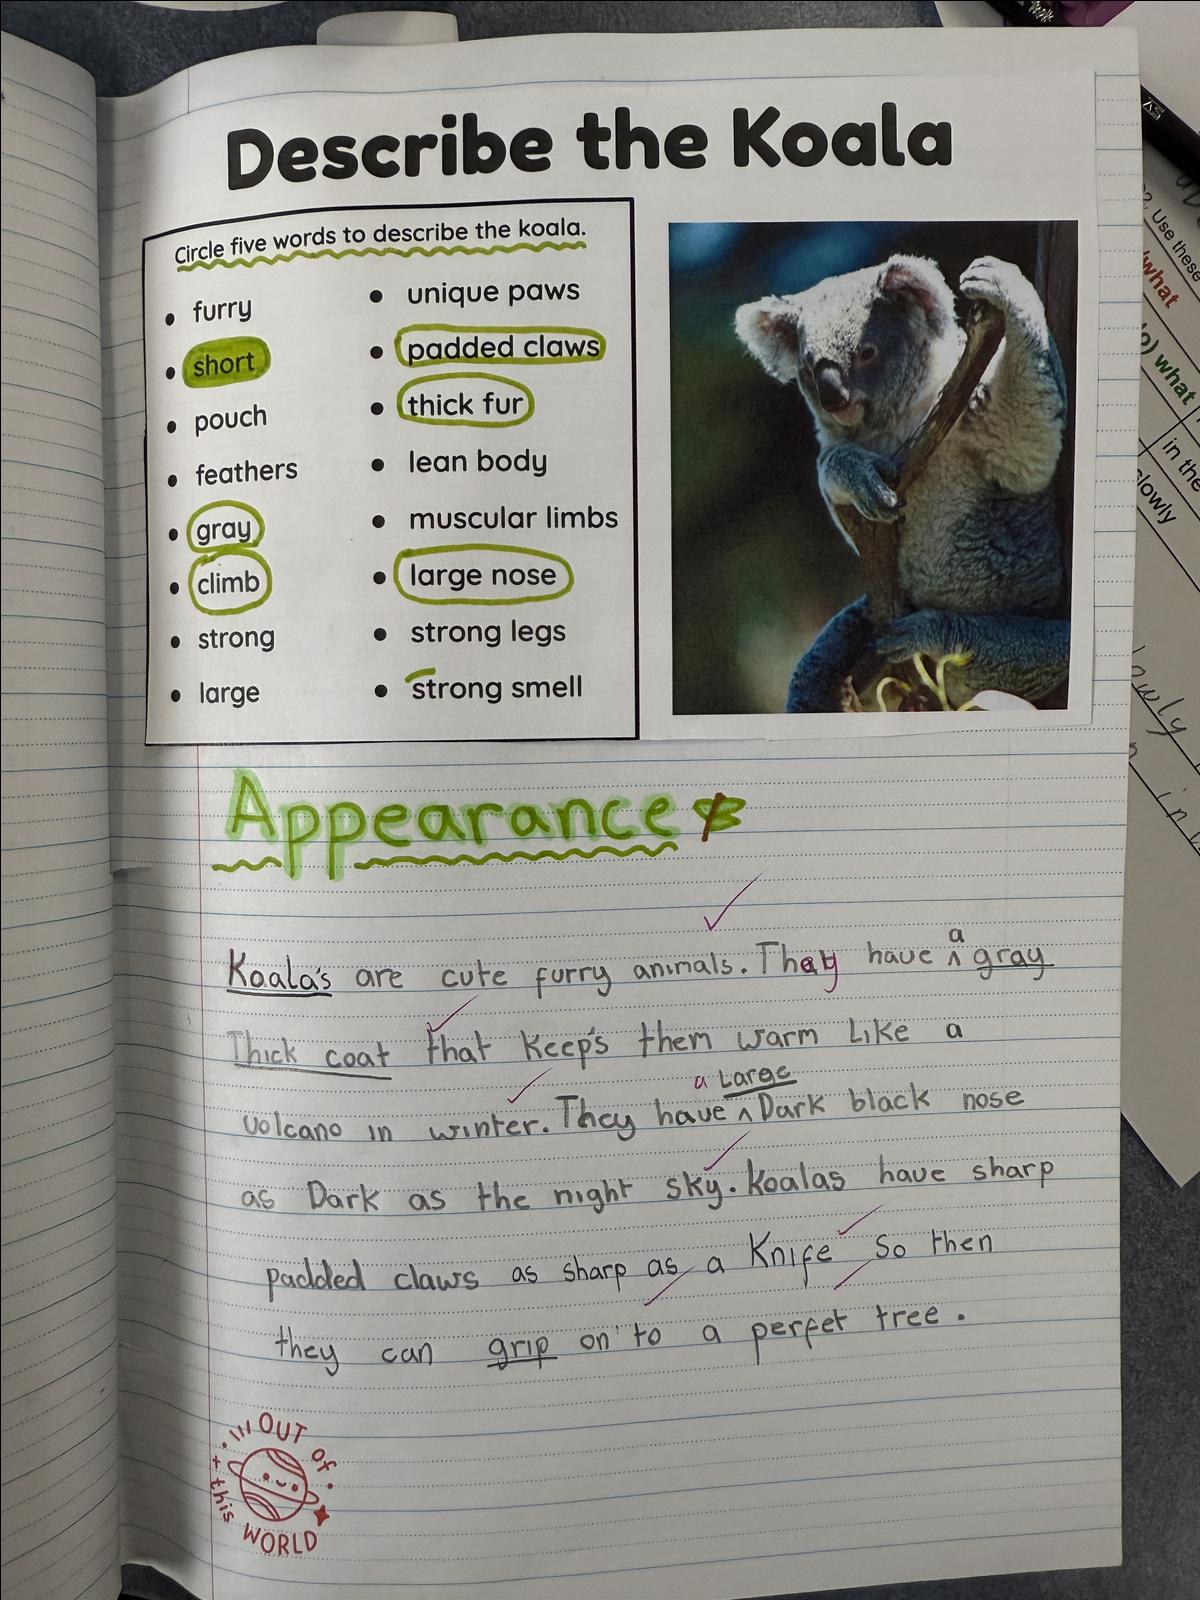 Describe the Koala
Circle five words to describe the koala.
furry
short
pouch
feathers
gray
climb
strong
large
unique paws
padded claws
thick fur
lean body
muscular limbs
large nose
strong legs
strong smell
Appearance
Koala's are cute furry animals. They have a gray
Thick coat that keep's them warm Like a
volcano in winter. They have a Large Dark black nose
as Dark as the night sky. Koalas have sharp
padded claws as sharp as a Knife So then
they can grip on to a perfet tree.
OUT OF
this
WORLD
2. Use these
what
what
in the
slowly
in